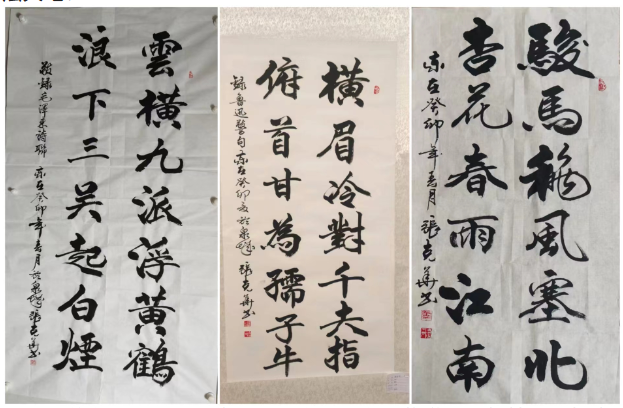 雲橫九派浮黃鶴
浪下三吴起白煙
敬録毛澤東詩聯 歲在癸卯年春月於泉城張克華书
橫眉冷對千夫指
俯首甘為孺子牛
録魯迅警句 歲在癸卯春於泉城 張克華书
駿馬龝風塞北
杏花春雨江南
歲在癸卯年春月 張克華书